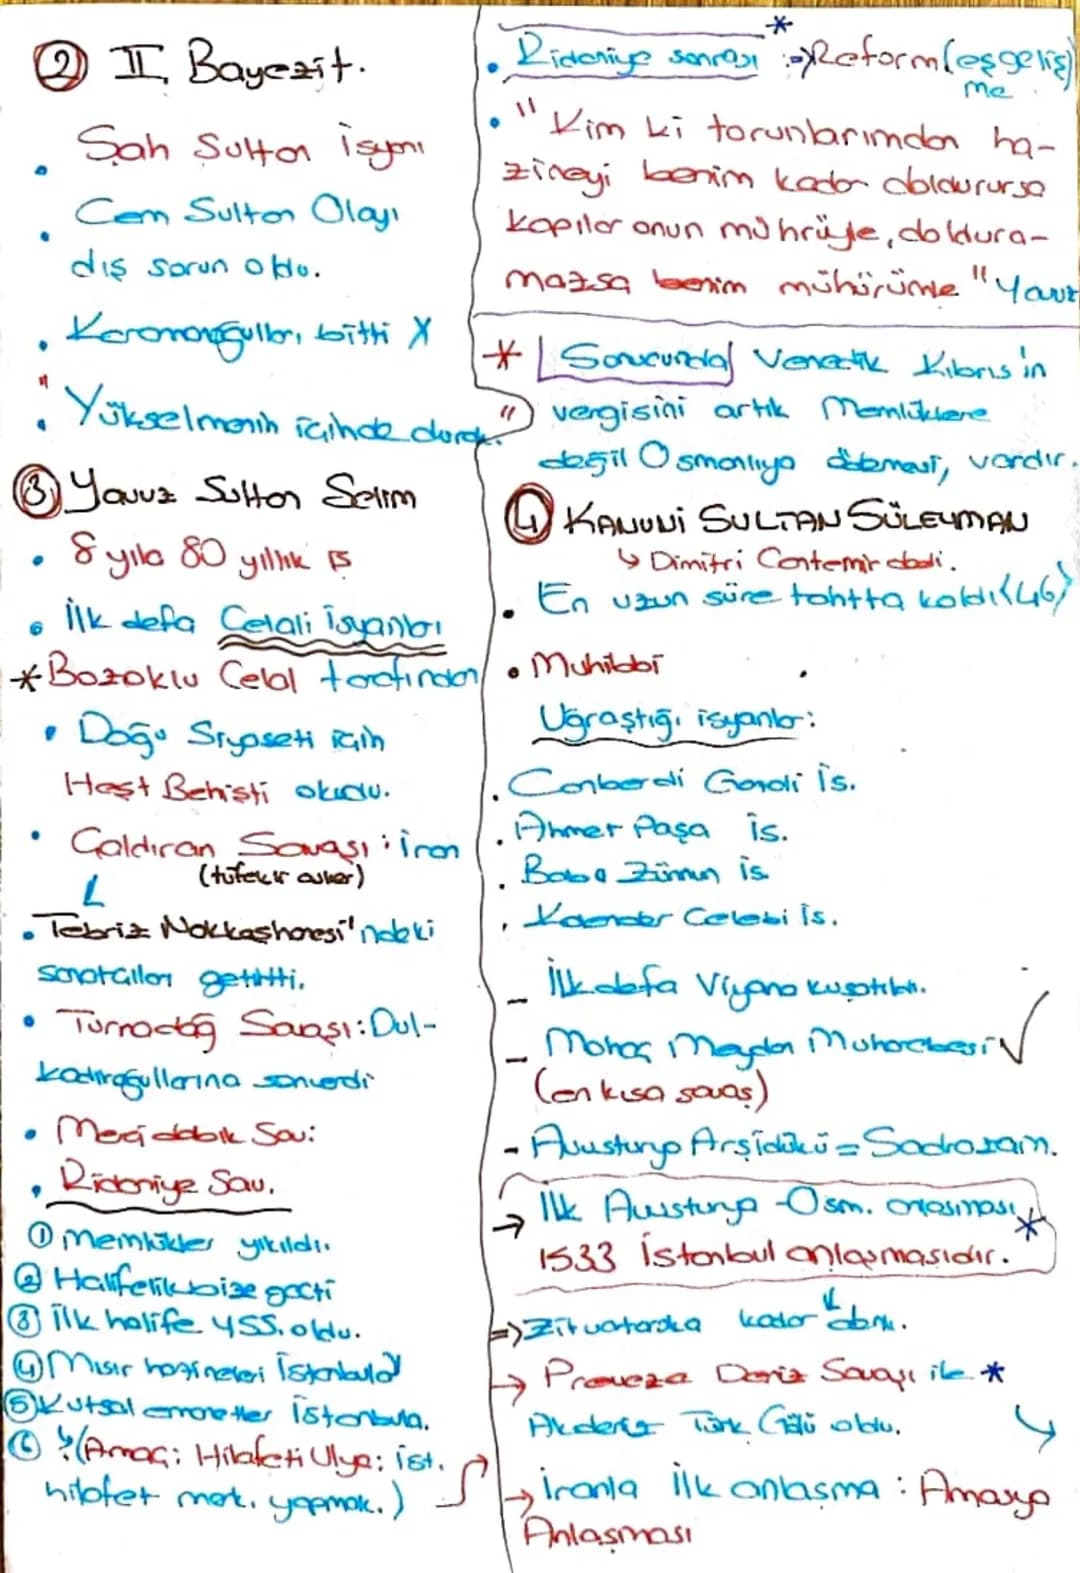 ② II. Bayezit.
• Şah Sultan İsyanı
• Cem Sultan Olayı
dış sorun oldu.
• Karamanoğulları bitti X
• "Yükselmenin içinde durak."
③ Yavuz Sultan Selim
• 8 yıla 80 yıllık iş
• İlk defa Celali İsyanları
* Bozoklu Celal tarafından
• Doğu Siyaseti için
Heşt Behişti okudu.
• Çaldıran Savaşı: İran
(tüfekli asker)
• Tebriz Nakkaşhanesi'ndeki
sanatçıları getirtti.
• Turnadağ Savaşı: Dul-
kadiroğullarına son verdi
• Mercidabık Sav:
• Ridaniye Sav.
① Memlükler yıkıldı.
② Halifelik bize geçti
③ İlk halife YSS. oldu.
④ Mısır hazineleri İstanbula
⑤ Kutsal emanetler İstanbula.
⑥ (Amaç: Hilafeti Ulya: ist.
hilafet merk. yapmak.)
• Ridaniye sonrası * => Reform (eşgeliş)
me
• "Kim ki torunlarımdan ha-
zineyi benim kadar doldurursa
kapılar onun mührüyle, doldura-
mazsa benim mühürümle" Yavuz
* Sonucunda Venedik Kıbrıs'ın
vergisini artık Memlüklere
değil Osmanlıya ödemesi, vardır.
④ KANUNİ SULTAN SÜLEYMAN
↳ Dimitri Cantemir dedi.
• En uzun süre tahtta kaldı (46)
• Muhibbi
Uğraştığı isyanlar:
• Canberdi Gazali İs.
• Ahmet Paşa is.
• Baba Zünnun is.
• Kalender Çelebi İs.
- İlk defa Viyana kuşatıldı.
- Mohaç Meydan Muharebesi √
(en kısa savaş)
- Avusturya Arşidükü = Sadrazam.
→ İlk Avusturya-Osm. anlaşması *
1533 İstanbul anlaşmasıdır.
=> Zitvatoruka kadar
→ Preveze Deniz Savaşı ile *
Akdeniz Türk Gölü oldu.
→ İranla ilk anlaşma: Amasya
Anlaşması